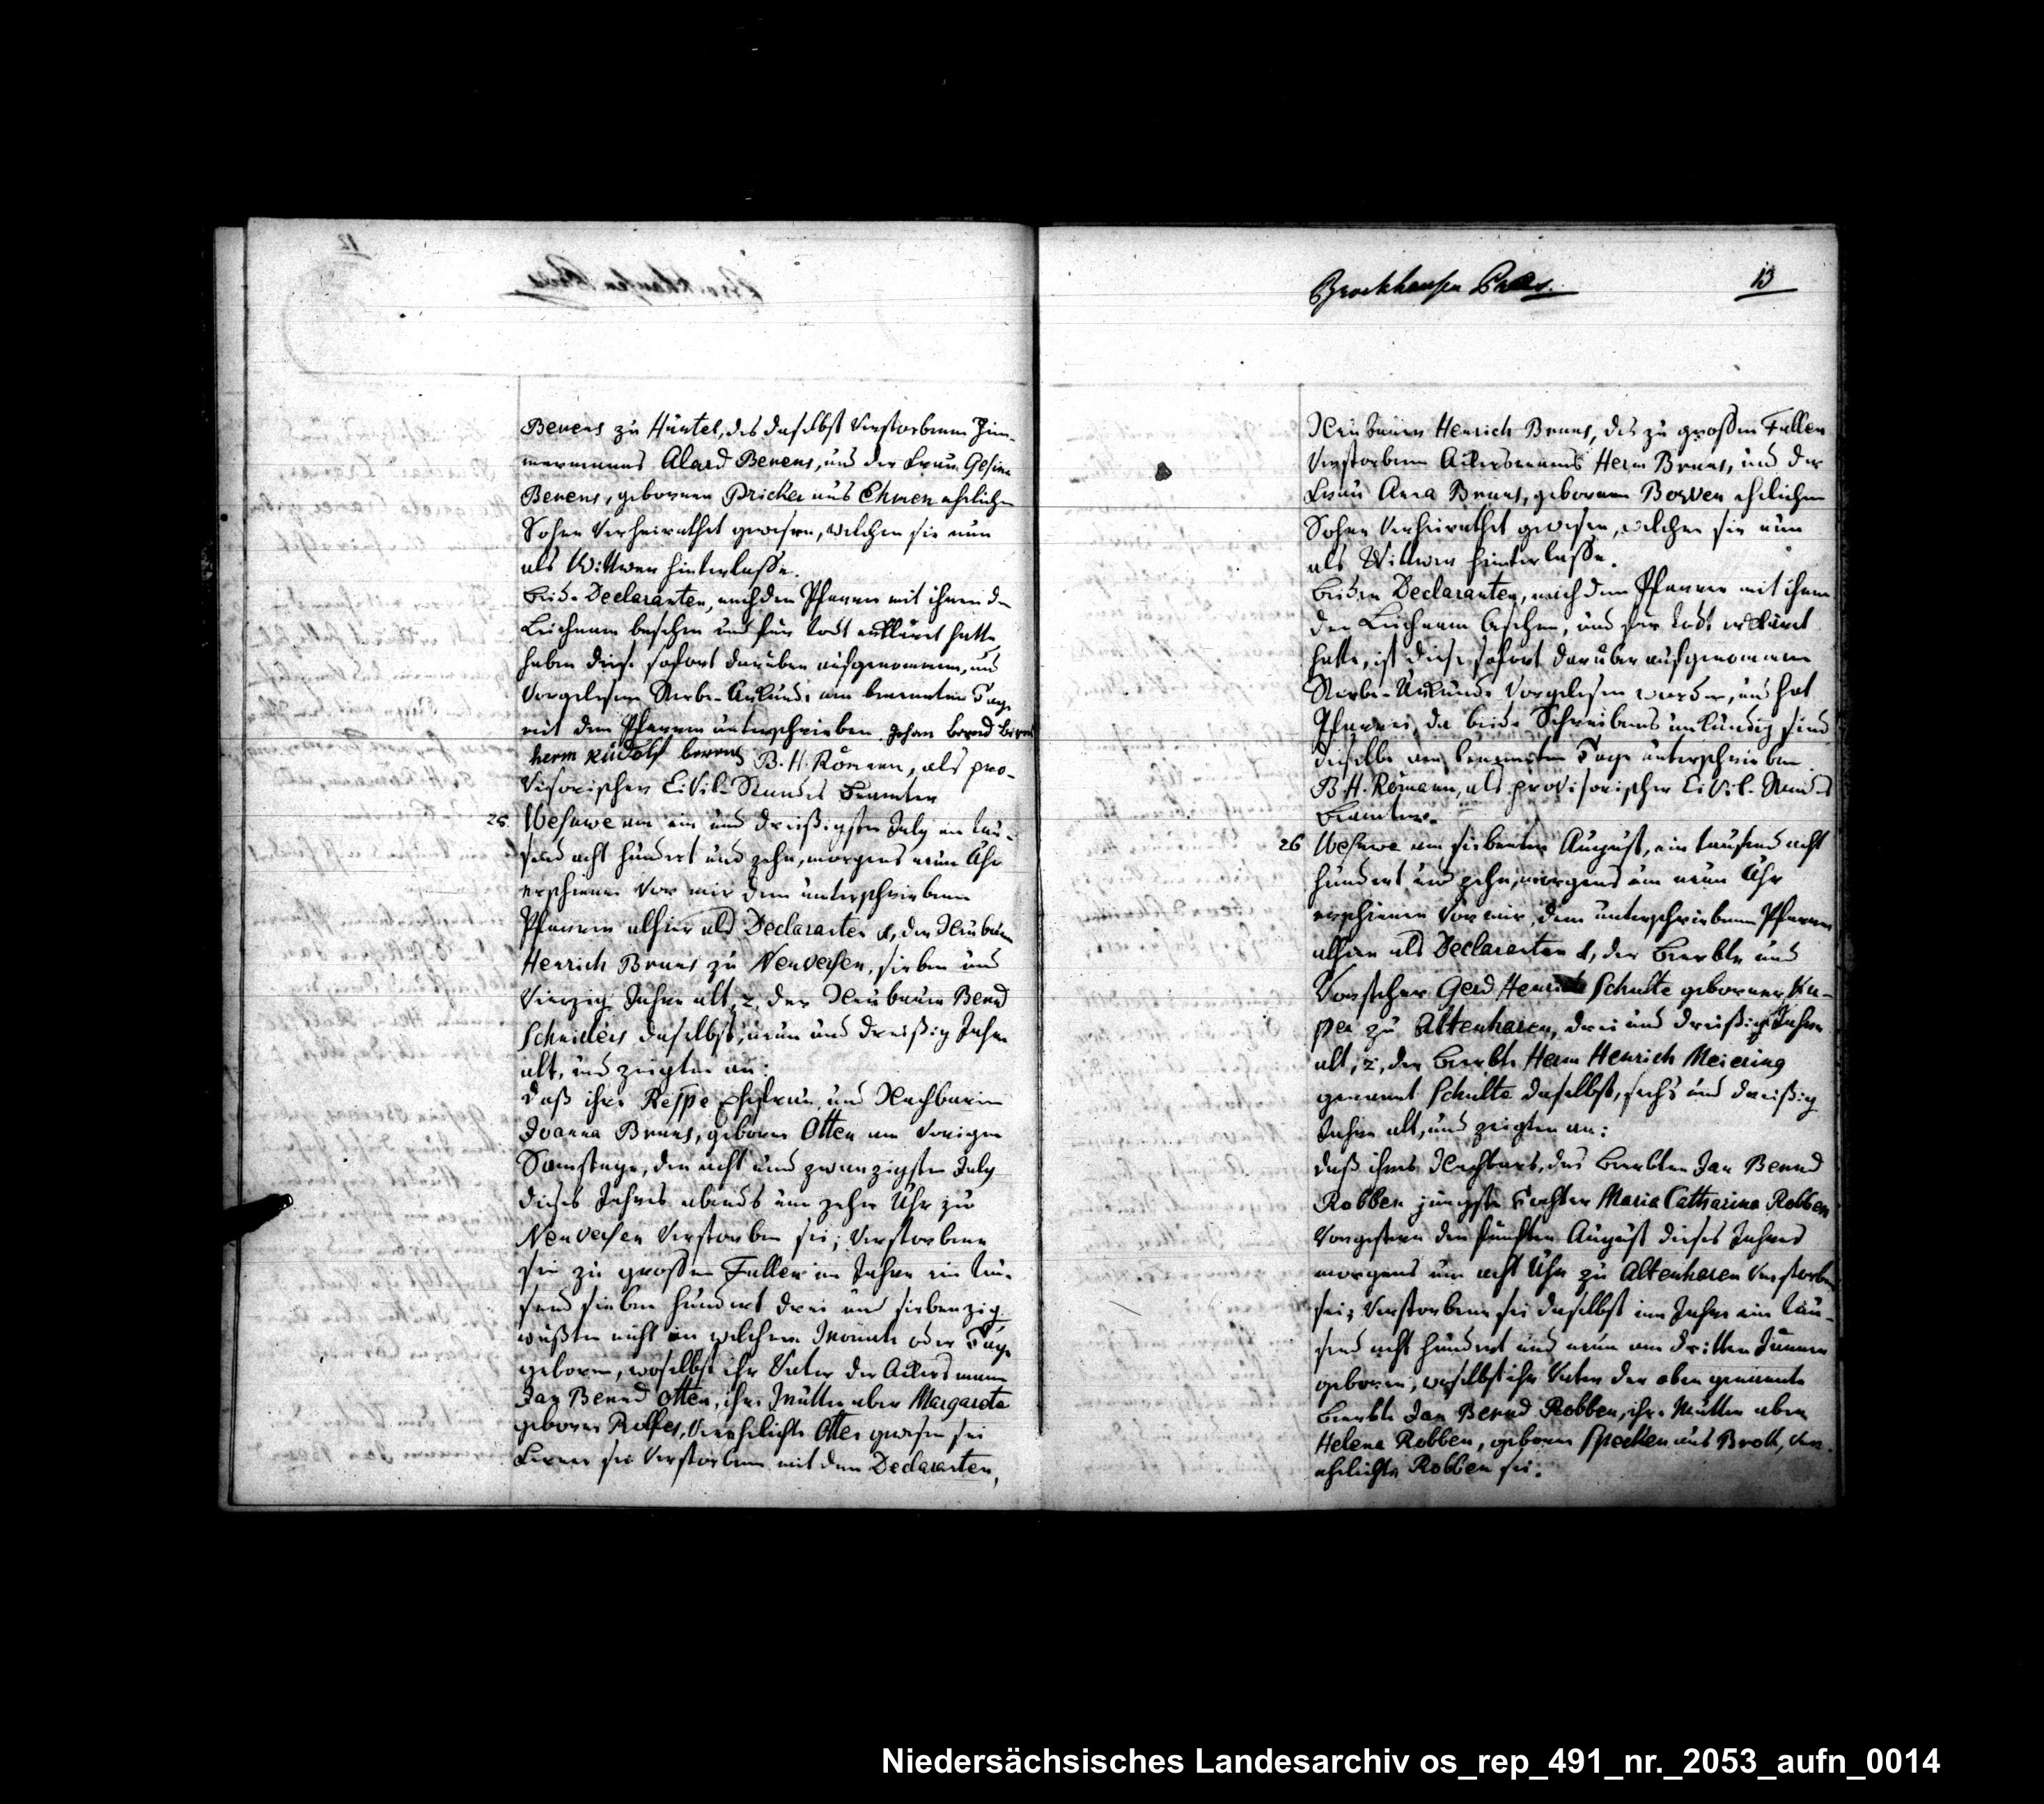 Brockhausen
13
Berens zu Hüntel, des daselbst Verstorbenen Zim-
mermanns Alard Berens, und der Frau Gesina
Berens, gebornen Pricker aus Ehmen ehelichen
Sohne Verheirathet gewesen, welchen sie nun
als Wittwer hinterlasse.
Beide Declaranten, nach dem Pfarrer mit ihnen den
Leichnam besehen und für todt erkläret hatte,
haben diese sofort darüber aufgenommene, und
Vorgelesene Sterbe-Urkunde am benennten Tage
mit dem Pfarrer unterschrieben Johan Berend Berens
herm Rudolf berens B. H. Römann, als pro-
visorischer Civil-Standes Beamter
25. Wesuwe am ein und dreißigsten July ein tau-
send acht hundert und zehn, morgens neun Uhr
erschienen Vor mir dem unterschriebenen
Pfarrern alhier als Declaranten 1, der Neubauer
Henrich Bruns zu Neuversen, sieben und
Vierzig Jahre alt, 2, der Neubauer Bernd
Schniders daselbst, neun und dreißig Jahre
alt, und zeigten an:
daß ihre Respe Ehefrau, und Nachbarin
Joanna Bruns, geborne Otten am Vorigen
Samstage, den acht und zwanzigsten July
dieses Jahres abends um zehn Uhr zu
Neuversen Verstorben sei; Verstorbene
sei zu grossen Fullen im Jahre ein tau-
send sieben hundert drei und siebenzig,
wußten nicht in welchem Monate oder Tage
geboren, woselbst ihr Vater der Ackersmann
Jan Bernd Otten, ihre Mutter aber Margareta
geborne Rolfes, Verehelichte Otten gewesen sei
Ferner sei Verstorbene mit dem Declaranten,
Neubauern Henrich Bruns, des zu grossen Fullen
Verstorbenen Ackersmanns Herm Bruns, und der
Frau Anna Bruns, gebornen Borven ehelichen
Sohne Verheirathet gewesen, welchen sie nun
als Wittwer hinterlasse.
Beiden Declaranten, nach dem Pfarrer mit ihnen
den Leichnam besehen, und für todt erkläret
hatte, ist diese sofort darüber aufgenommene
Sterbe-Urkunde Vorgelesen worden, und hat
Pfarrer, da beide Schreibens unkündig sind
dieselbe am benennten Tage unterschrieben
B. H. Römann, als provisorischer Civil-Standes
Beamter.
26 Wesuwe am siebenten August, ein tausend acht
hundert und zehn, morgens um neun Uhr
erschienen Vor mir, dem unterschriebenen Pfarrer
alhier als Declaranten 1, der Beerbte und
Vorsteher Gerd Henrich Schulte geborner Ku-
per zu Altenharen, drei und dreißig Jahre
alt, 2, der Beerbte Herm Henrich Meiering
genannt Schulte daselbst, sechs und dreißig
Jahre alt, und zeigten an:
daß ihres Nachbars, des Beerbten Jan Bernd
Robben jüngste Tochter Maria Catharina Robben
Vorgestern den fünften August dieses Jahres
morgens um acht Uhr zu Altenharen Verstorben
sei; Verstorbene sei daselbst im Jahre ein tau-
send acht hundert und neun am dritten Januar
geboren; woselbst ihr Vater der oben genannte
Beerbte Jan Bernd Robben, ihre Mutter aber
Helena Robben, geborne Specken aus Brock, ver-
ehelichte Robben sei.
Niedersächsisches Landesarchiv os_rep_491_nr._2053_aufn_0014